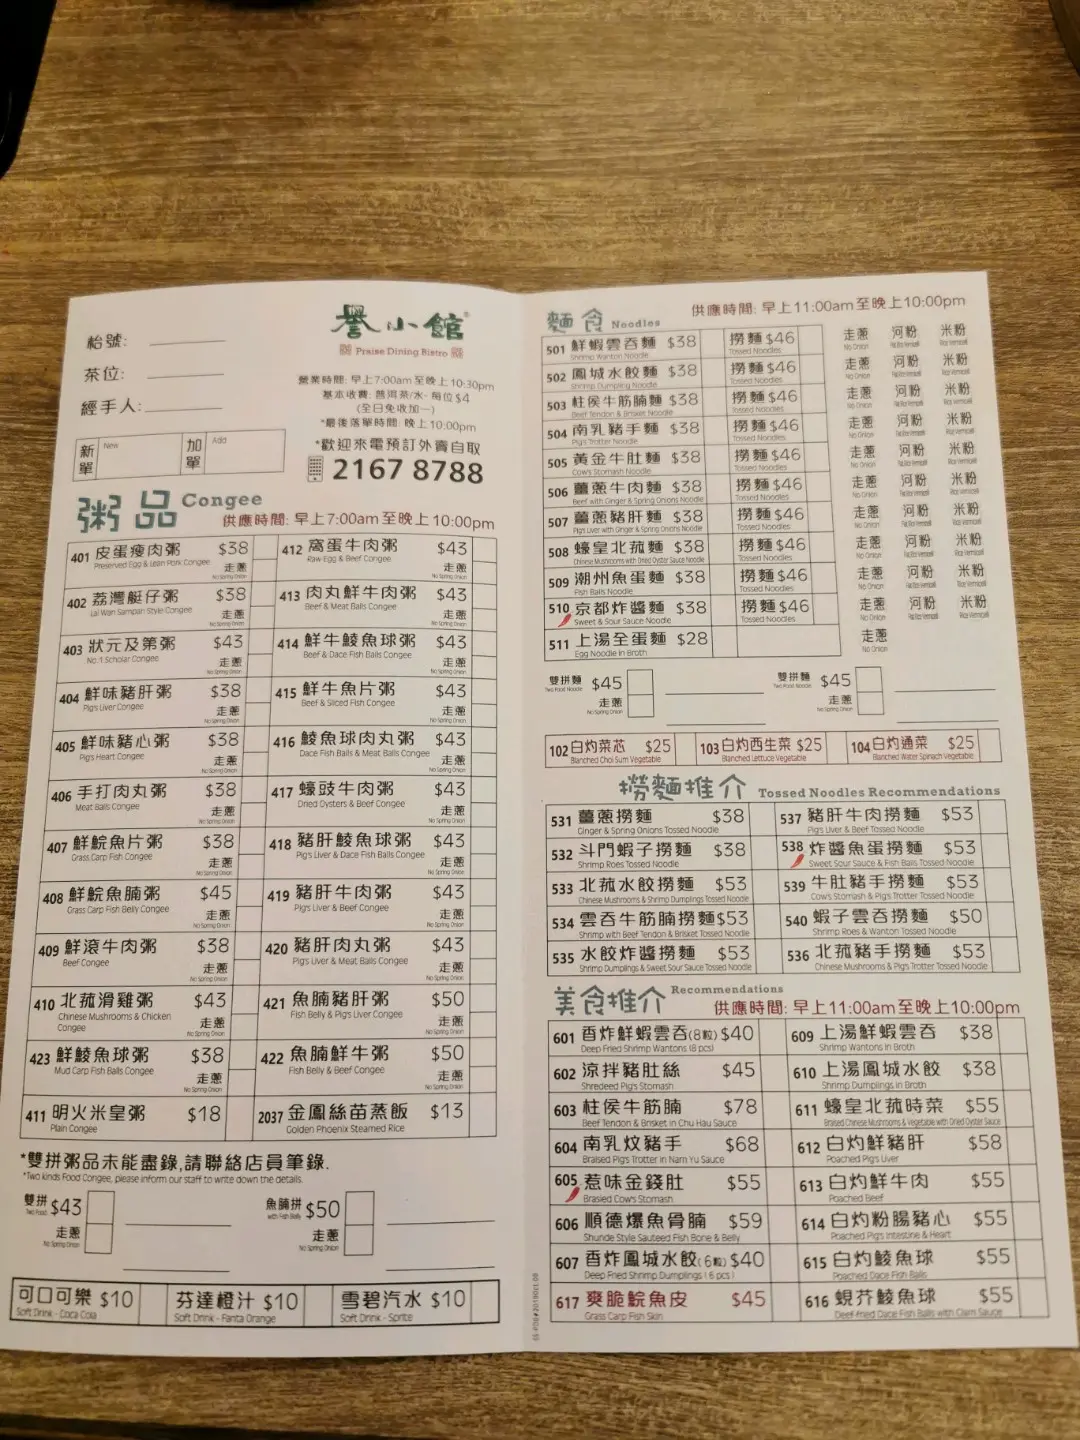 譽小館
Praise Dining Bistro
枱號:
茶位:
經手人:
營業時間: 早上7:00am至晚上10:30pm
基本收費: 普洱茶/水- 每位$4
(全日免收加一)
*最後落單時間: 晚上10:00pm
*歡迎來電預訂外賣自取
2167 8788
新單 New 加單 Add
粥品 Congee
供應時間: 早上7:00am至晚上10:00pm
401 皮蛋瘦肉粥 $38
Preserved Egg & Lean Pork Congee 走蔥 No Spring Onion
402 荔灣艇仔粥 $38
Lai Wan Sampan Style Congee 走蔥 No Spring Onion
403 狀元及第粥 $43
No.1 Scholar Congee 走蔥 No Spring Onion
404 鮮味豬肝粥 $38
Pig's Liver Congee 走蔥 No Spring Onion
405 鮮味豬心粥 $38
Pig's Heart Congee 走蔥 No Spring Onion
406 手打肉丸粥 $38
Meat Balls Congee 走蔥 No Spring Onion
407 鮮鯇魚片粥 $38
Grass Carp Fish Congee 走蔥 No Spring Onion
408 鮮鯇魚腩粥 $45
Grass Carp Fish Belly Congee 走蔥 No Spring Onion
409 鮮滾牛肉粥 $38
Beef Congee 走蔥 No Spring Onion
410 北菰滑雞粥 $43
Chinese Mushrooms & Chicken Congee 走蔥 No Spring Onion
423 鮮鯪魚球粥 $38
Mud Carp Fish Balls Congee 走蔥 No Spring Onion
411 明火米皇粥 $18
Plain Congee
412 窩蛋牛肉粥 $43
Raw Egg & Beef Congee 走蔥 No Spring Onion
413 肉丸鮮牛肉粥 $43
Beef & Meat Balls Congee 走蔥 No Spring Onion
414 鮮牛鯪魚球粥 $43
Beef & Dace Fish Balls Congee 走蔥 No Spring Onion
415 鮮牛魚片粥 $43
Beef & Sliced Fish Congee 走蔥 No Spring Onion
416 鯪魚球肉丸粥 $43
Dace Fish Balls & Meat Balls Congee 走蔥 No Spring Onion
417 蠔豉牛肉粥 $43
Dried Oysters & Beef Congee 走蔥 No Spring Onion
418 豬肝鯪魚球粥 $43
Pig's Liver & Dace Fish Balls Congee 走蔥 No Spring Onion
419 豬肝牛肉粥 $43
Pig's Liver & Beef Congee 走蔥 No Spring Onion
420 豬肝肉丸粥 $43
Pig's Liver & Meat Balls Congee 走蔥 No Spring Onion
421 魚腩豬肝粥 $50
Fish Belly & Pig's Liver Congee 走蔥 No Spring Onion
422 魚腩鮮牛粥 $50
Fish Belly & Beef Congee 走蔥 No Spring Onion
2037 金鳳絲苗蒸飯 $13
Golden Phoenix Steamed Rice
*雙拼粥品未能盡錄,請聯絡店員筆錄.
*Two kinds Food Congee, please inform our staff to write down the details.
雙拼 Two Food $43 走蔥 No Spring Onion
魚腩拼 with Fish Belly $50 走蔥 No Spring Onion
可口可樂 $10 Soft Drink - Coca Cola
芬達橙汁 $10 Soft Drink - Fanta Orange
雪碧汽水 $10 Soft Drink - Sprite
麵食 Noodles
供應時間: 早上11:00am至晚上10:00pm
501 鮮蝦雲吞麵 $38 撈麵 $46 走蔥 河粉 米粉
Shrimp Wanton Noodle Tossed Noodles No Onion
502 鳳城水餃麵 $38 撈麵 $46 走蔥 河粉 米粉
Shrimp Dumpling Noodle Tossed Noodles No Onion
503 柱侯牛筋腩麵 $38 撈麵 $46 走蔥 河粉 米粉
Beef Tendon & Brisket Noodle Tossed Noodles No Onion
504 南乳豬手麵 $38 撈麵 $46 走蔥 河粉 米粉
Pig's Trotter Noodle Tossed Noodles No Onion
505 黃金牛肚麵 $38 撈麵 $46 走蔥 河粉 米粉
Cow's Stomach Noodle Tossed Noodles No Onion
506 薑蔥牛肉麵 $38 撈麵 $46 走蔥 河粉 米粉
Beef with Ginger & Spring Onions Noodle Tossed Noodles No Onion
507 薑蔥豬肝麵 $38 撈麵 $46 走蔥 河粉 米粉
Pig's Liver with Ginger & Spring Onions Noodle Tossed Noodles No Onion
508 蠔皇北菰麵 $38 撈麵 $46 走蔥 河粉 米粉
Chinese Mushrooms with Dried Oyster Sauce Noodle Tossed Noodles No Onion
509 潮州魚蛋麵 $38 撈麵 $46 走蔥 河粉 米粉
Fish Balls Noodle Tossed Noodles No Onion
510 京都炸醬麵 $38 撈麵 $46 走蔥 河粉 米粉
Sweet & Sour Sauce Noodle Tossed Noodles No Onion
511 上湯全蛋麵 $28 走蔥
Egg Noodle in Broth No Onion
雙拼麵 Two Food Noodle $45 走蔥 No Spring Onion
雙拼麵 Two Food Noodle $45 走蔥 No Spring Onion
102 白灼菜芯 $25 Blanched Choi Sum Vegetable
103 白灼西生菜 $25 Blanched Lettuce Vegetable
104 白灼通菜 $25 Blanched Water Spinach Vegetable
撈麵推介 Tossed Noodles Recommendations
531 薑蔥撈麵 $38
Ginger & Spring Onions Tossed Noodle
532 斗門蝦子撈麵 $38
Shrimp Roes Tossed Noodle
533 北菰水餃撈麵 $53
Chinese Mushrooms & Shrimp Dumplings Tossed Noodle
534 雲吞牛筋腩撈麵 $53
Shrimp with Beef Tendon & Brisket Tossed Noodle
535 水餃炸醬撈麵 $53
Shrimp Dumplings & Sweet Sour Sauce Tossed Noodle
537 豬肝牛肉撈麵 $53
Pig's Liver & Beef Tossed Noodle
538 炸醬魚蛋撈麵 $53
Sweet Sour Sauce & Fish Balls Tossed Noodle
539 牛肚豬手撈麵 $53
Cow's Stomash & Pig's Trotter Tossed Noodle
540 蝦子雲吞撈麵 $50
Shrimp Roes & Wanton Tossed Noodle
536 北菰豬手撈麵 $53
Chinese Mushrooms & Pig's Trotter Tossed Noodle
美食推介 Recommendations
供應時間: 早上11:00am至晚上10:00pm
601 香炸鮮蝦雲吞(8粒) $40
Deep Fried Shrimp Wantons (8 pcs)
602 涼拌豬肚絲 $45
Shredeed Pig's Stomash
603 柱侯牛筋腩 $78
Beef Tendon & Brisket in Chu Hau Sauce
604 南乳炆豬手 $68
Braised Pig's Trotter in Nam Yu Sauce
605 惹味金錢肚 $55
Brasied Cow's Stomash
606 順德爆魚骨腩 $59
Shunde Style Sauteed Fish Bone & Belly
607 香炸鳳城水餃(6粒) $40
Deep Fried Shrimp Dumplings ( 6 pcs )
617 爽脆鯇魚皮 $45
Grass Carp Fish Skin
609 上湯鮮蝦雲吞 $38
Shrimp Wantons in Broth
610 上湯鳳城水餃 $38
Shrimp Dumplings in Broth
611 蠔皇北菰時菜 $55
Braised Chinese Mushrooms & Vegetable with Dried Oyster Sauce
612 白灼鮮豬肝 $58
Poached Pig's Liver
613 白灼鮮牛肉 $55
Poached Beef
614 白灼粉腸豬心 $55
Poached Pig's Intestine & Heart
615 白灼鯪魚球 $55
Poached Dace Fish Balls
616 蜆芥鯪魚球 $55
Deef-fried Dace Fish Balls with Clam Sauce